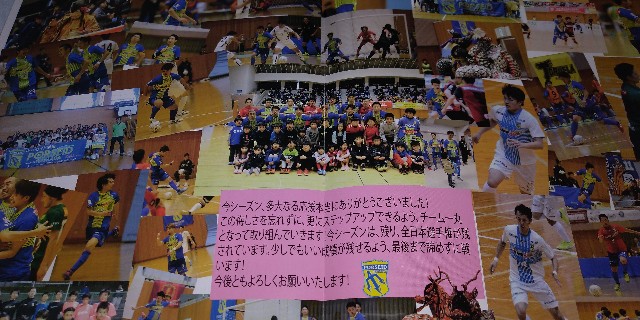 今シーズン、多大なる応援本当にありがとうございました!
この悔しさを忘れずに、更にステップアップできるよう、チーム一丸
となって取り組んでいきます 今シーズンは、残り、全日本選手権が残
されています。少しでもいい成績が残せるよう、最後まで諦めずに戦
います!
今後ともよろしくお願いいたします!